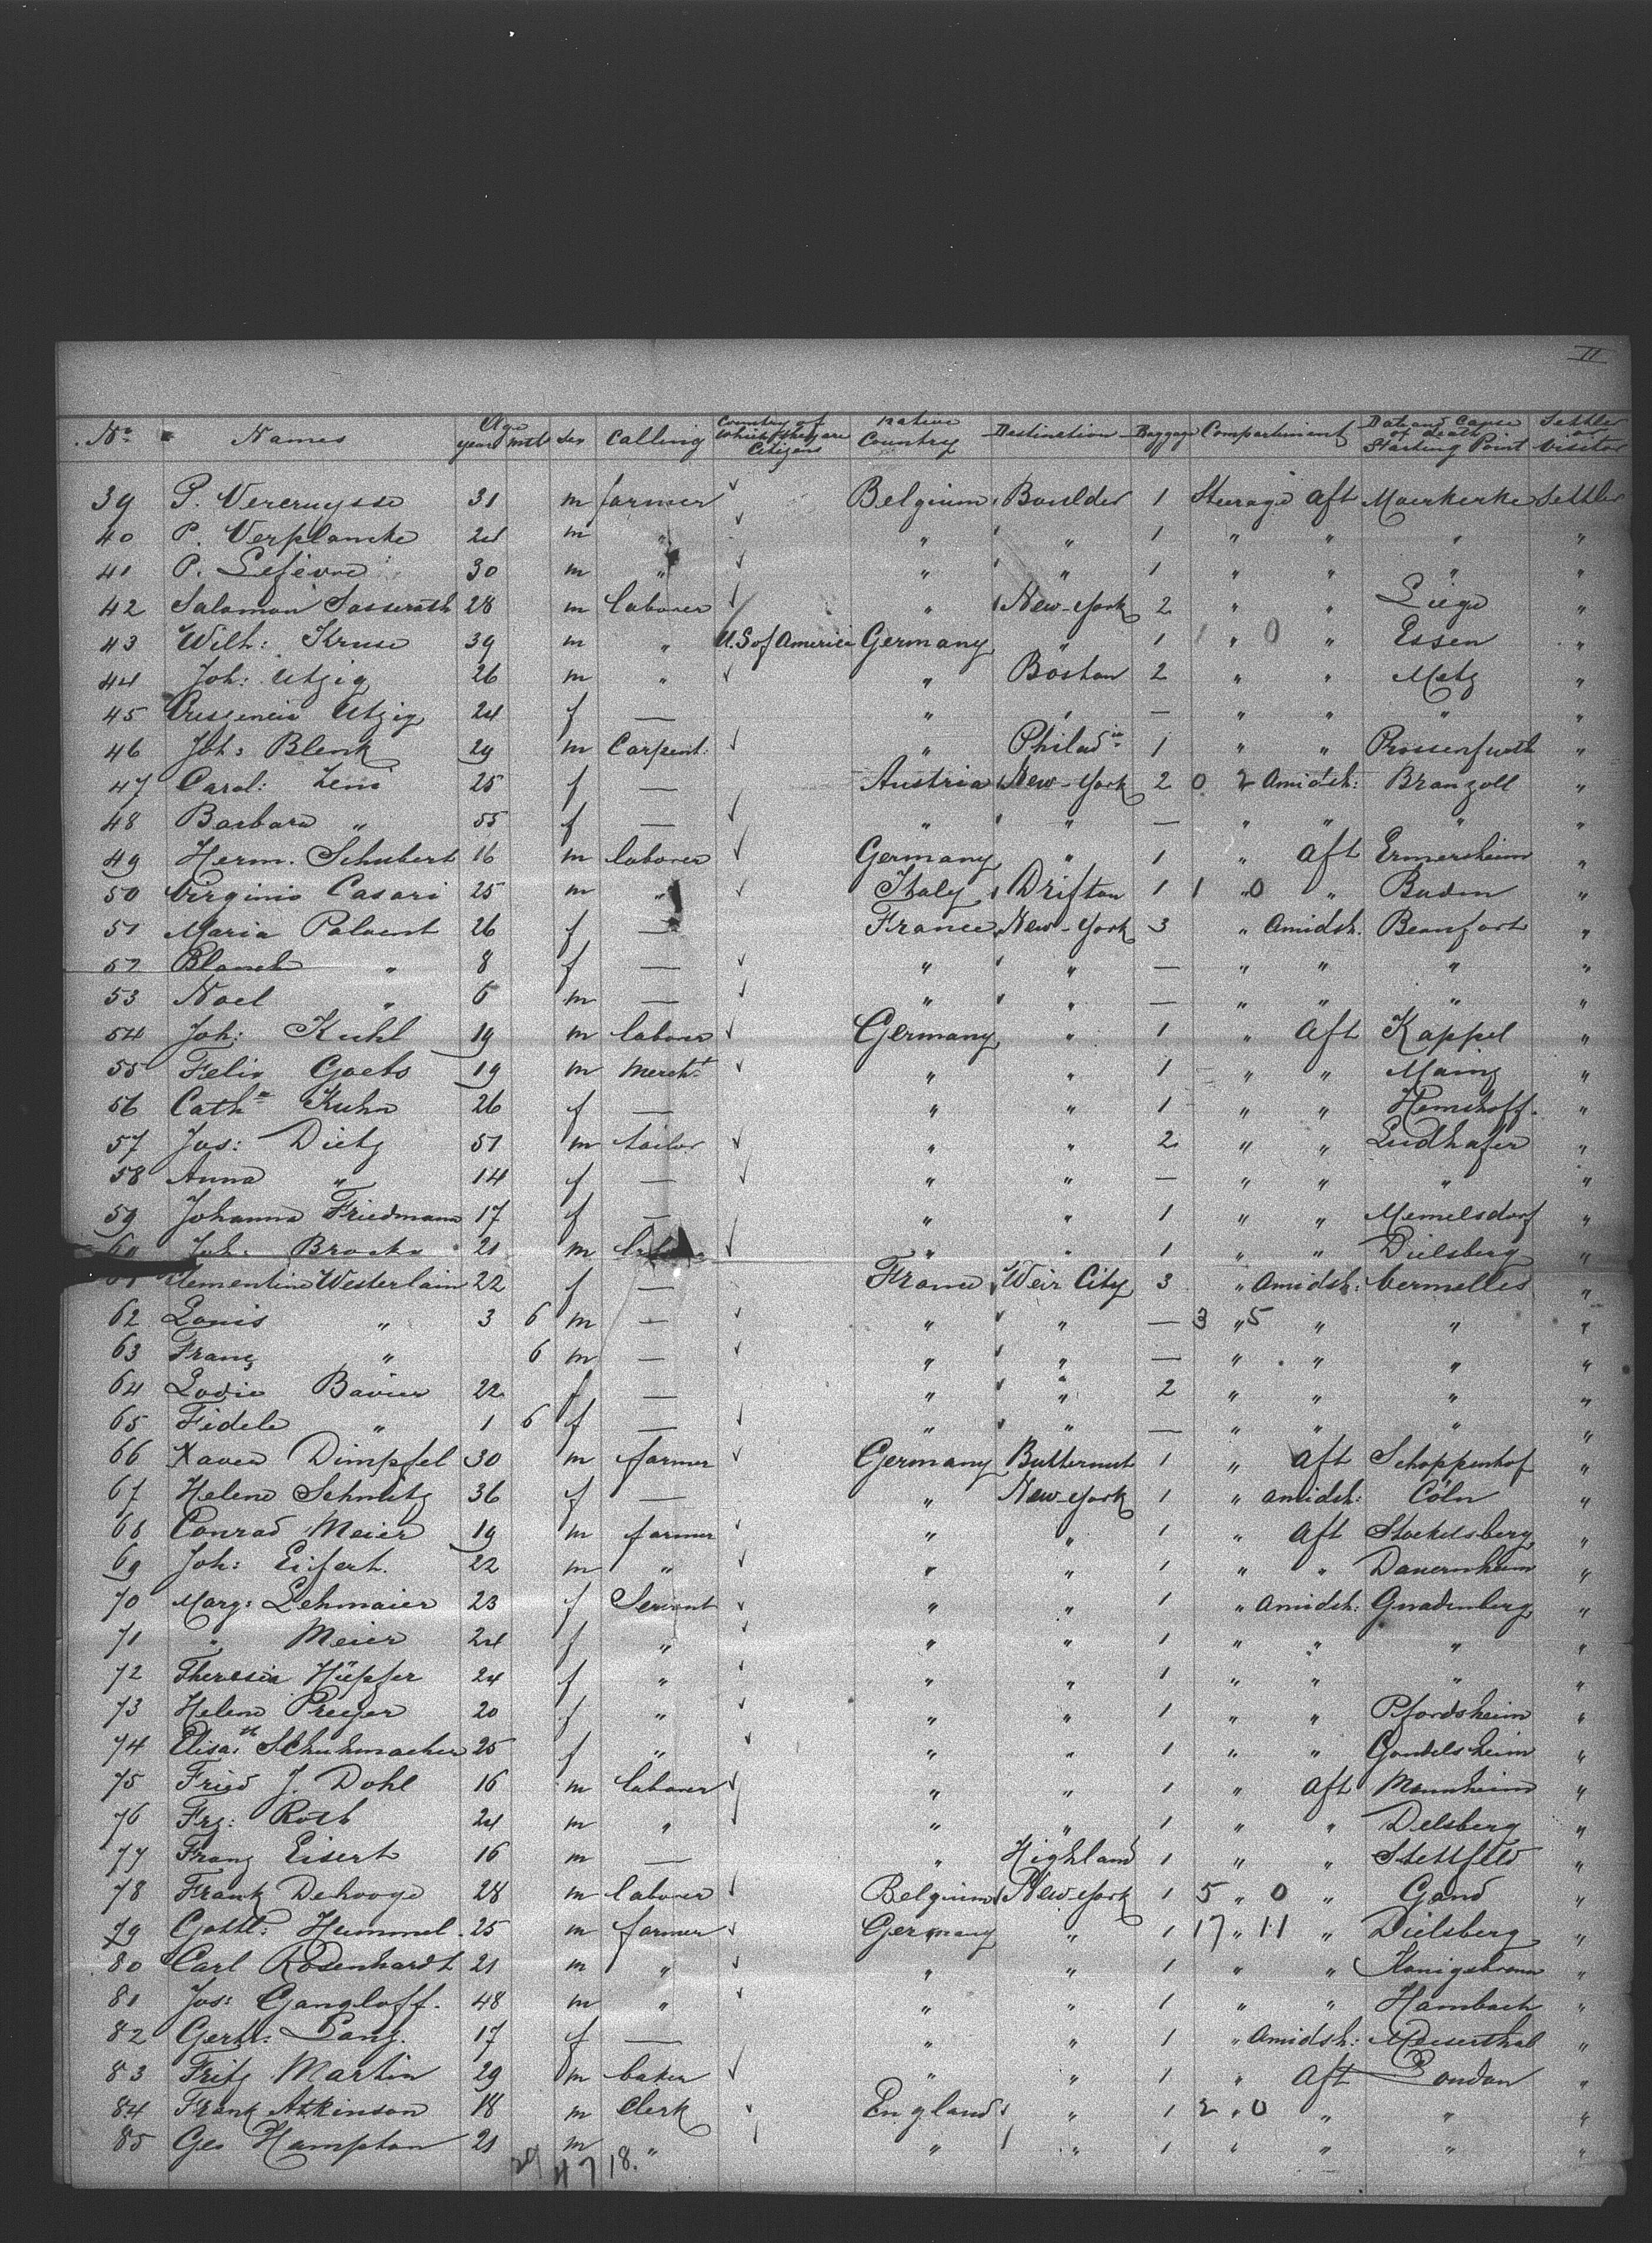 II
No. Names Age years mth Sex Calling Country of which they are Citizens Native Country Destination Baggage Compartment Date and Cause of death Starting Point Settler or Visitor
39 P. Vercruysse 31 m farmer ✓ Belgium Boulder 1 Steerage aft Moerkerke Settler
40 P. Verplancke 24 m " ✓ " " 1 " " " "
41 P. Lefevre 30 m " ✓ " " 1 " " " "
42 Salomon Sasserath 28 m laborer ✓ " New-York 2 " " Liege "
43 Wilh: Kruse 39 m " U.S of America Germany " 1 1 " 0 " Essen "
44 Joh: Utzig 26 m " ✓ " Boston 2 " " Metz "
45 Crescencia Utzig 24 f — " " — " " " "
46 Joh: Blenk 29 m Carpent: ✓ " Philad ia 1 " " Prossenfurth "
47 Carol: Zeni 25 f — Austria New-York 2 0 2 Amidsh: Branzoll "
48 Barbara " 55 f — ✓ " " — " " " "
49 Herm. Schubert 16 m laborer ✓ Germany " 1 " aft Ermersheim "
50 Virginio Casari 25 m " ✓ Italy Drifton 1 1 " 0 " Baden "
51 Maria Palvent 26 f — France New-York 3 " Amidsh. Beaufort "
52 Blanch " 8 f — ✓ " " — " " " "
53 Noel " 6 m — ✓ " " — " " " "
54 Joh: Kuhl 19 m laborer ✓ Germany " 1 " aft Kappel "
55 Felix Goets 19 m Mercht ✓ " " 1 " " Mainz "
56 Cath a Kuhn 26 f — " " 1 " " Hemshoff. "
57 Jos: Dietz 51 m tailor ✓ " " 2 " " Ludhafen "
58 Anna " 14 f — ✓ " " — " " " "
59 Johanna Friedmann 17 f — " " 1 " " Memelsdorf "
60 Joh: Brocks 21 m laborer ✓ " " 1 " " Dielsberg "
61 Clementine Westerlain 22 f — France Weir City 3 " Amidsh: Vermelles "
62 Louis " 3 6 m — ✓ " " — 3 " 5 " " "
63 Franz " 6 m — ✓ " " — " " " "
64 Lodie Bavier 22 f — " " 2 " " " "
65 Fidele " 1 6 f — ✓ " " — " " " "
66 Xaver Dimpfel 30 m farmer ✓ Germany Butternut 1 " aft Schoppenhof "
67 Helene Schmitz 36 f — " New-York 1 " amidsh: Cöln "
68 Conrad Meier 19 m farmer ✓ " " 1 " Aft Stockelsberg "
69 Joh: Eifert. 22 m " ✓ " " 1 " " Dauernheim "
70 Marg: Lehmaier 23 f Servant ✓ " " 1 " Amidsh: Gnadenberg "
71 " Meier 24 f " ✓ " " 1 " " " "
72 Theresia Hüpfer 24 f " ✓ " " 1 " " " "
73 Helene Preyer 20 f " ✓ " " 1 " " Pfordsheim "
74 Elisa:th Schuhmacher 25 f " ✓ " " 1 " " Gondelsheim "
75 Fried J. Dohl 16 m laborer ✓ " " 1 " aft Mannheim "
76 Frz: Roth 24 m " ✓ " " 1 " " Delsberg "
77 Franz Eisert 16 m — " Highland 1 " " Stettfeld "
78 Frank Dehooge 28 m laborer ✓ Belgium New-York 1 5 " 0 " Gand "
79 Gottl: Hummel. 25 m farmer ✓ Germany " 1 17 " 11 " Dielsberg "
80 Carl Rosenhardt 21 m " ✓ " " 1 " " Königsbronn "
81 Jos: Gangloff. 48 m " ✓ " " 1 " " Hambach "
82 Gertr: Lang. 17 f — " " 1 " Amidsh: "
83 Fritz Martin 29 m baker ✓ " " 1 " Aft London "
84 Frank Atkinson 18 m Clerk ✓ England " 1 2 " 0 " " "
85 Geo Hampton 21 m " ✓ " " 1 " " " "
29 47 18.